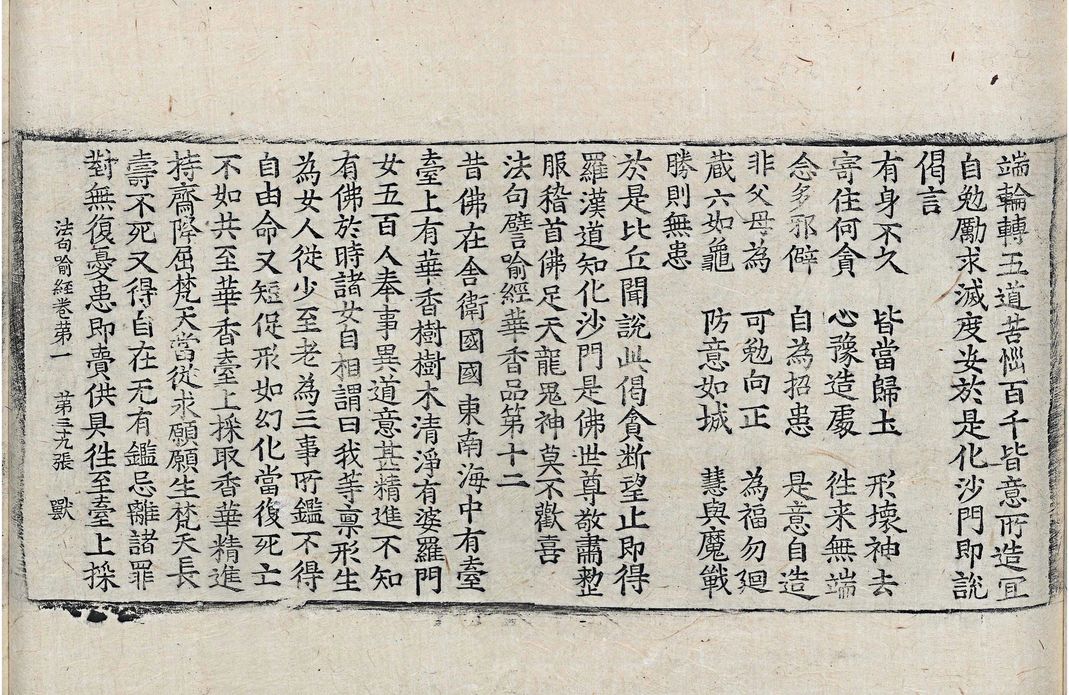 端輪轉五道苦惱百千皆意所造冝
自勉勵求滅度安於是化沙門即說
偈言
有身不久　皆當歸土　形壞神去
寄住何貪　心豫造處　往来無端
念多邪僻　自為招患　是意自造
非父母為　可勉向正　為福勿廻
蔵六如龜　防意如城　慧與魔戰
勝則無患
於是比丘聞說此偈貪断望止即得
羅漢道知化沙門是佛世尊敬肅整
服稽首佛足天龍鬼神莫不歡喜
法句譬喻經華香品第十二
昔佛在舍衛國國東南海中有臺
臺上有華香樹樹木清淨有婆羅門
女五百人奉事異道意甚精進不知
有佛於時諸女自相謂曰我等禀形生
為女人從少至老為三事所鑑不得
自由命又短促形如幻化當復死亡
不如共至華香臺上採取香華精進
持齋降屈梵天當從求願願生梵天長
壽不死又得自在无有鑑忌離諸罪
對無復憂患即賷供具往至臺上採
法句喻経卷苐一　苐三九張　獸